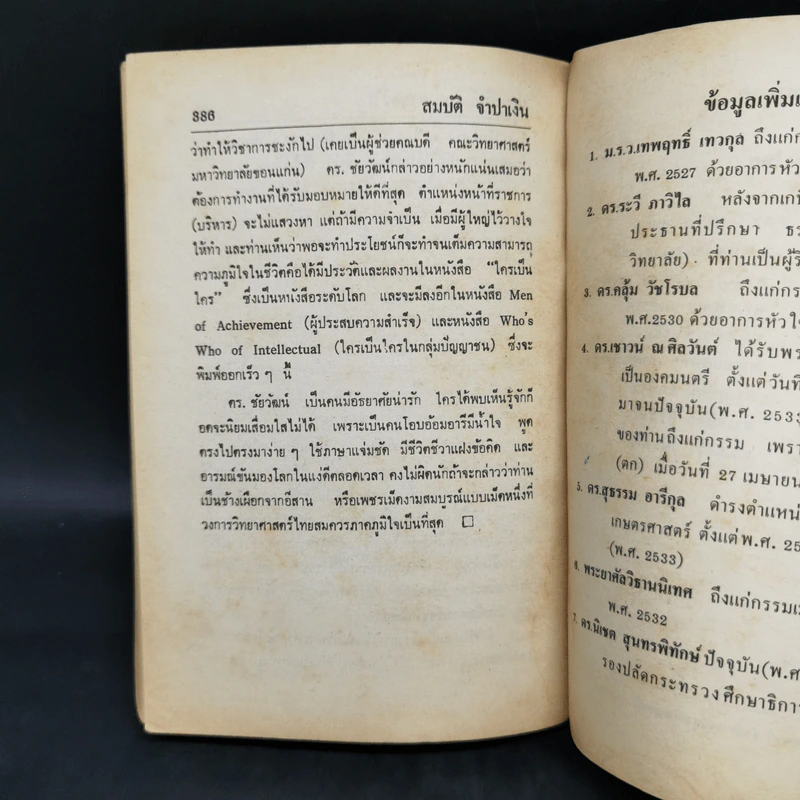 386
สมบัติ จำปาเงิน
ว่าทำให้วิชาการชะงักไป (เคยเป็นผู้ช่วยคณบดี คณะวิทยาศาสตร์
มหาวิทยาลัยขอนแก่น) ดร. ชัยวัฒน์กล่าวอย่างหนักแน่นเสมอว่า
ต้องการทำงานที่ได้รับมอบหมายให้ดีที่สุด ตำแหน่งหน้าที่ราชการ
(บริหาร) จะไม่แสวงหา แต่ถ้ามีความจำเป็น เมื่อมีผู้ใหญ่ไว้วางใจ
ให้ทำ และท่านเห็นว่าพอจะทำประโยชน์ก็จะทำจนเต็มความสามารถ
ความภูมิใจในชีวิตคือได้มีประวัติและผลงานในหนังสือ "ใครเป็น
ใคร" ซึ่งเป็นหนังสือระดับโลก และจะมีลงอีกในหนังสือ Men
of Achievement (ผู้ประสบความสำเร็จ) และหนังสือ Who's
Who of Intellectual (ใครเป็นใครในกลุ่มปัญญาชน) ซึ่งจะ
พิมพ์ออกเร็ว ๆ นี้
ดร. ชัยวัฒน์ เป็นคนมีอัธยาศัยน่ารัก ใครได้พบเห็นรู้จักก็
อดจะนิยมเลื่อมใสไม่ได้ เพราะเป็นคนโอบอ้อมอารีมีน้ำใจ พูด
ตรงไปตรงมาง่าย ๆ ใช้ภาษาแจ่มชัด มีชีวิตชีวาแฝงข้อคิด และ
อารมณ์ขันมองโลกในแง่ดีตลอดเวลา คงไม่ผิดนักถ้าจะกล่าวว่าท่าน
เป็นช้างเผือกจากอีสาน หรือเพชรเม็ดงามสมบูรณ์แบบเม็ดหนึ่งที่
วงการวิทยาศาสตร์ไทยสมควรภาคภูมิใจเป็นที่สุด □
ข้อมูลเพิ่มเ
1. ม.ร.ว.เทพฤทธิ์ เทวกุล ถึงแก่ก
พ.ศ. 2527 ด้วยอาการหัว
2. ดร.ระวี ภาวิไล หลังจากเกษี
ประธานที่ปรึกษา ธร
วิทยาลัย) ที่ท่านเป็นผู้ริ
3. ดร.คลุ้ม วัชโรบล ถึงแก่กร
พ.ศ.2530 ด้วยอาการหัวใ
4. ดร.เชาวน์ ณ ศิลวันต์ ได้รับพร
เป็นองคมนตรี ตั้งแต่วันที่
มาจนปัจจุบัน(พ.ศ. 2533
ของท่านถึงแก่กรรม เพรา
(ตก) เมื่อวันที่ 27 เมษายน
5. ดร.สุธรรม อารีกุล ดำรงตำแหน่
เกษตรศาสตร์ ตั้งแต่ พ.ศ. 25
(พ.ศ. 2533)
6. พระยาศัลวิธานนิเทศ ถึงแก่กรรมเ
พ.ศ. 2532
7. ดร.นิเชต สุนทรพิทักษ์ ปัจจุบัน(พ.ศ
รองปลัดกระทรวงศึกษาธิการ